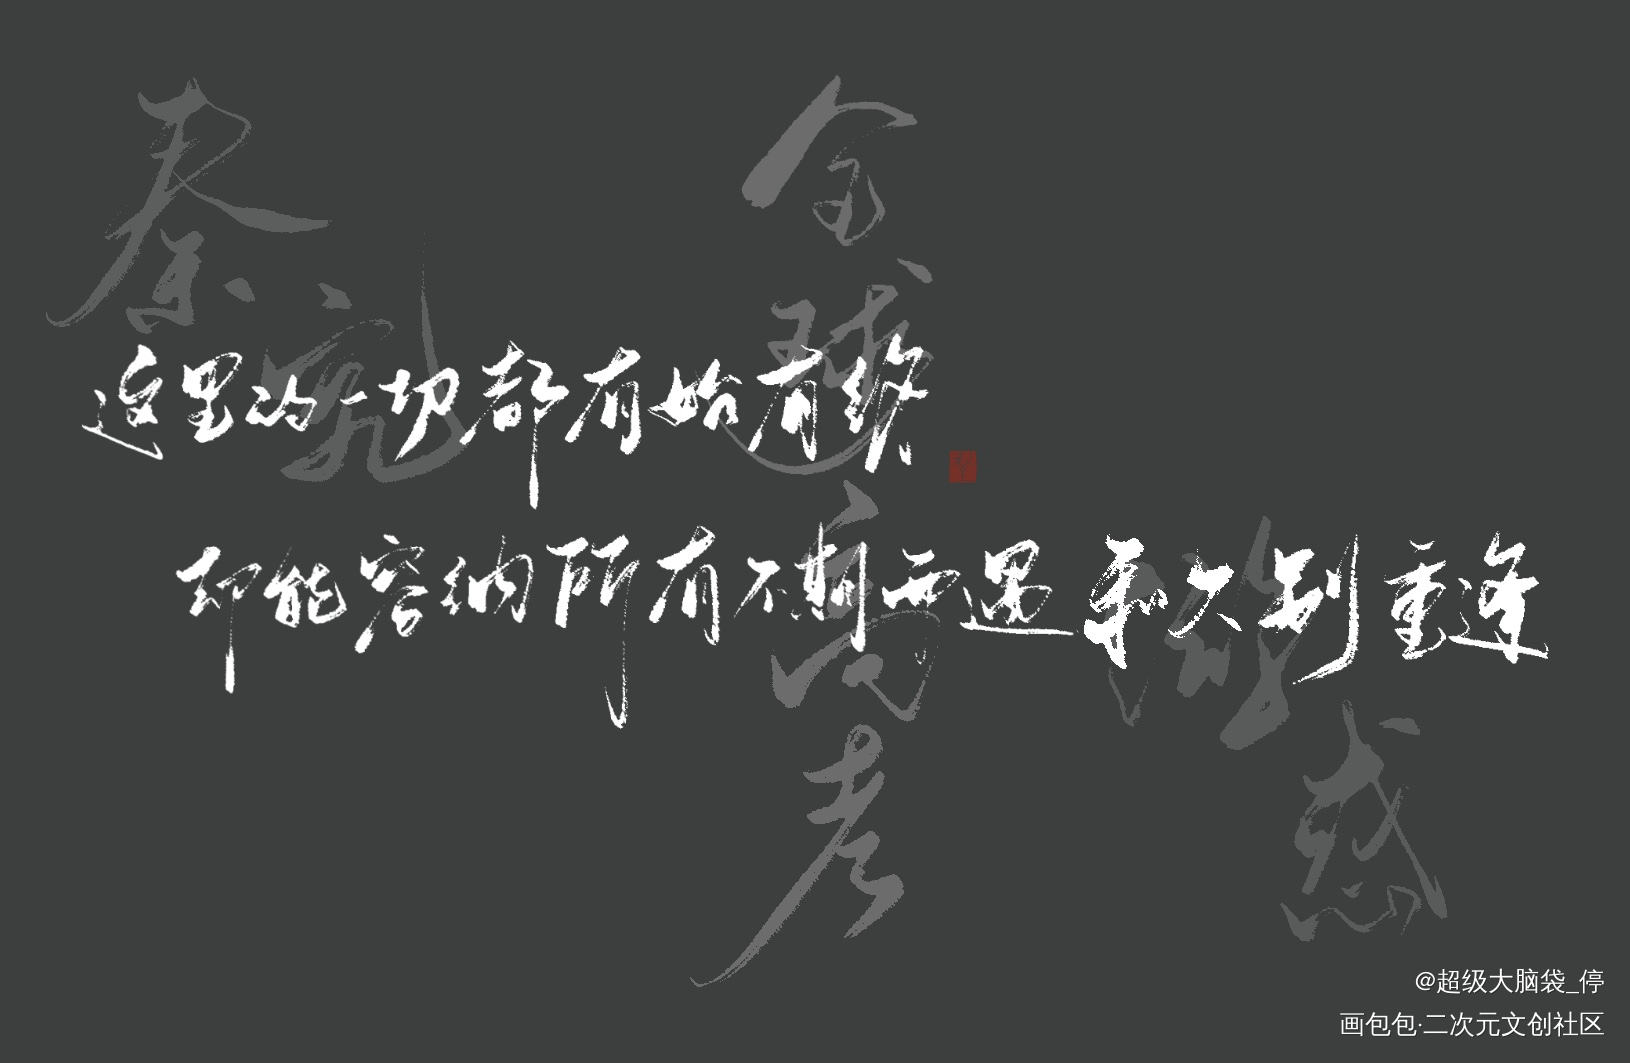 秦究
全球高考
游惑
这里的一切都有始有终
却能容纳所有不期而遇和久别重逢
@超级大脑袋_停
画包包·二次元文创社区